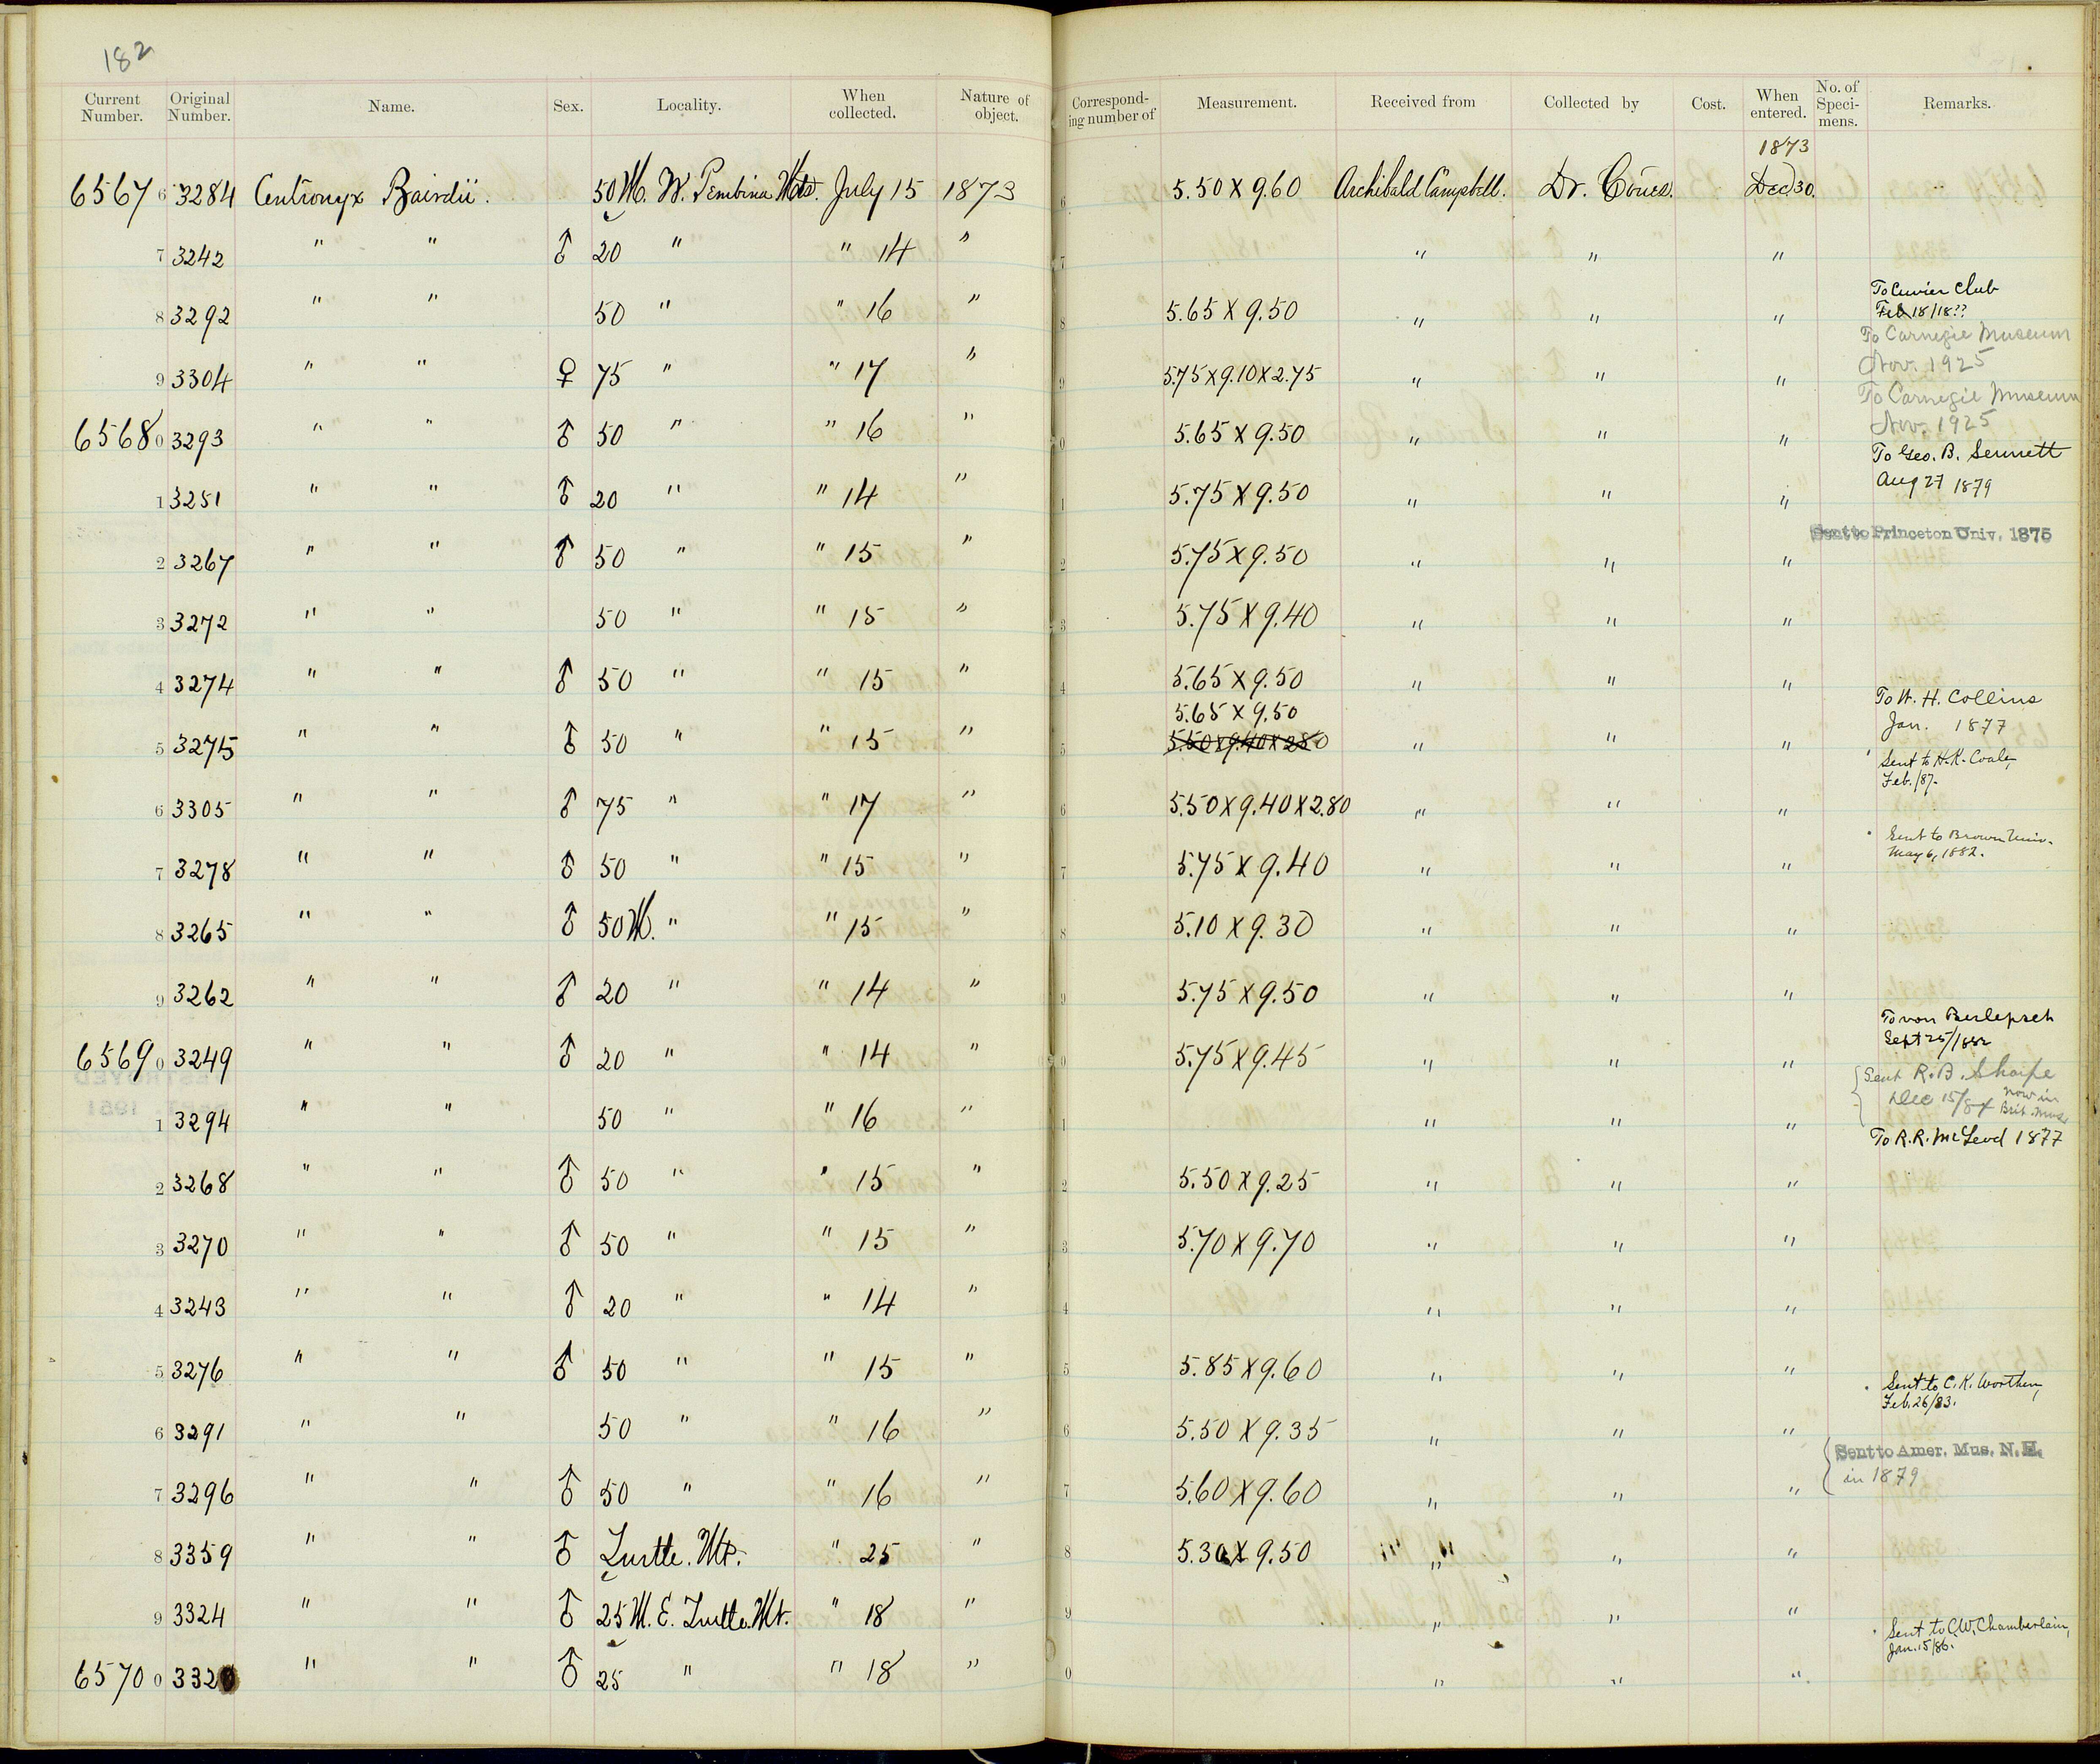 182
Current Number. Original Number. Name. Sex. Locality. When collected. Nature of object. Corresponding number of Measurement. Received from Collected by Cost. When entered. No. of Specimens. Remarks.
1873
6567 6 3284 Centronyx Bairdii. 50 M. W. Pembina Mts. July 15 1873 6 5.50 X 9.60 Archibald Campbell. Dr. Coues. Dec 30.
7 3242 " " ♂ 20 " " 14 " 7 " " "
To Cuvier Club
Feb 18/18??
8 3292 " " 50 " " 16 " 8 5.65 X 9.50 " " "
To Carnegie Museum
Nov. 1925
9 3304 " " ♀ 75 " " 17 " 9 5.75 X 9.10 X 2.75 " " "
To Carnegie Museum
Nov. 1925
6568 0 3293 " " ♂ 50 " " 16 " 0 5.65 X 9.50 " " "
To Geo. B. Sennett
Aug 27 1879
1 3251 " " ♂ 20 " " 14 " 1 5.75 X 9.50 " " "
Sent to Princeton Univ. 1875
2 3267 " " ♂ 50 " " 15 " 2 5.75 X 9.50 " " "
3 3272 " " 50 " " 15 " 3 5.75 X 9.40 " " "
4 3274 " " ♂ 50 " " 15 " 4 5.65 X 9.50 " " "
To W. H. Collins
Jan. 1877
5.65 X 9.50
5 3275 " " ♂ 50 " " 15 " 5 5.50 X 9.40 X 2.80 " " "
Sent to H. K. Coale,
Feb./87.
6 3305 " " ♂ 75 " " 17 " 6 5.50 X 9.40 X 2.80 " " "
Sent to Brown Univ.
May 6, 1882.
7 3278 " " ♂ 50 " " 15 " 7 5.75 X 9.40 " " "
8 3265 " " ♂ 50 M. " " 15 " 8 5.10 X 9.30 " " "
9 3262 " " ♂ 20 " " 14 " 9 5.75 X 9.50 " " "
To von Berlepsch
Sept 25/1882
6569 0 3249 " " ♂ 20 " " 14 " 0 5.75 X 9.45 " " "
Sent R. B. Sharpe
Dec 15/84 now in Brit. Mus
1 3294 " " 50 " " 16 " 1 " " "
To R. R. McLeod 1877
2 3268 " " ♂ 50 " " 15 " 2 5.50 X 9.25 " " "
3 3270 " " ♂ 50 " " 15 " 3 5.70 X 9.70 " " "
4 3243 " " ♂ 20 " " 14 " 4 " " "
5 3276 " " ♂ 50 " " 15 " 5 5.85 X 9.60 " " "
Sent to C. K. Worthen,
Feb. 26/83.
6 3291 " " 50 " " 16 " 6 5.50 X 9.35 " " "
Sent to Amer. Mus. N. H.
in 1879
7 3296 " " ♂ 50 " " 16 " 7 5.60 X 9.60 " " "
8 3359 " " ♂ Turtle. Mt. " 25 " 8 5.30 X 9.50 " " " "
9 3324 " " ♂ 25 M. E. Turtle. Mt. " 18 " 9 " " "
Sent to C. W. Chamberlain,
Jan. 15/86.
6570 0 3320 " " ♂ 25 " " 18 " 0 " " "